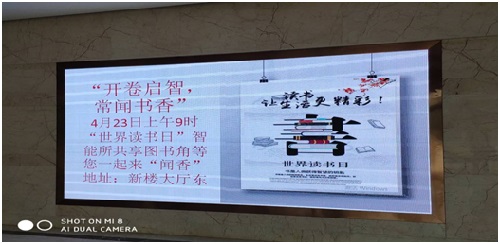 “开卷启智，
常闻书香”
4月23日上午9时
“世界读书日”智
能所共享图书角等
您一起来“闻香”
地址：新楼大厅东
读书
让生活更精彩！
世界读书日
Windows
SHOT ON MI 8
AI DUAL CAMERA